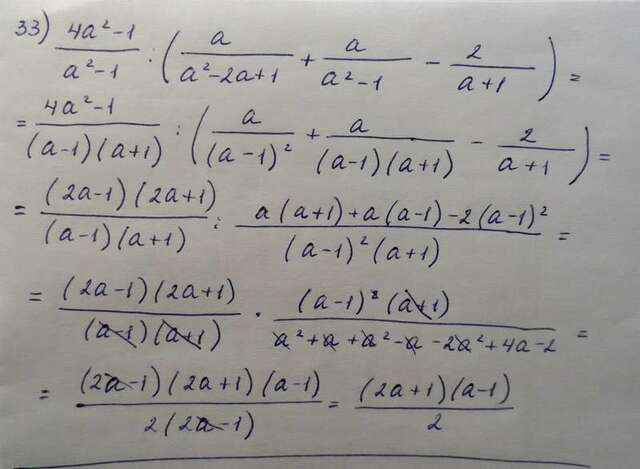 33) (4a²-1)/(a²-1) : (a/(a²-2a+1) + a/(a²-1) - 2/(a+1)) =
= (4a²-1)/((a-1)(a+1)) : (a/(a-1)² + a/((a-1)(a+1)) - 2/(a+1)) =
= ((2a-1)(2a+1))/((a-1)(a+1)) : (a(a+1)+a(a-1)-2(a-1)²)/((a-1)²(a+1)) =
= ((2a-1)(2a+1))/((a-1)(a+1)) · ((a-1)²(a+1))/(a²+a+a²-a-2a²+4a-2) =
= ((2a-1)(2a+1)(a-1))/(2(2a-1)) = ((2a+1)(a-1))/2